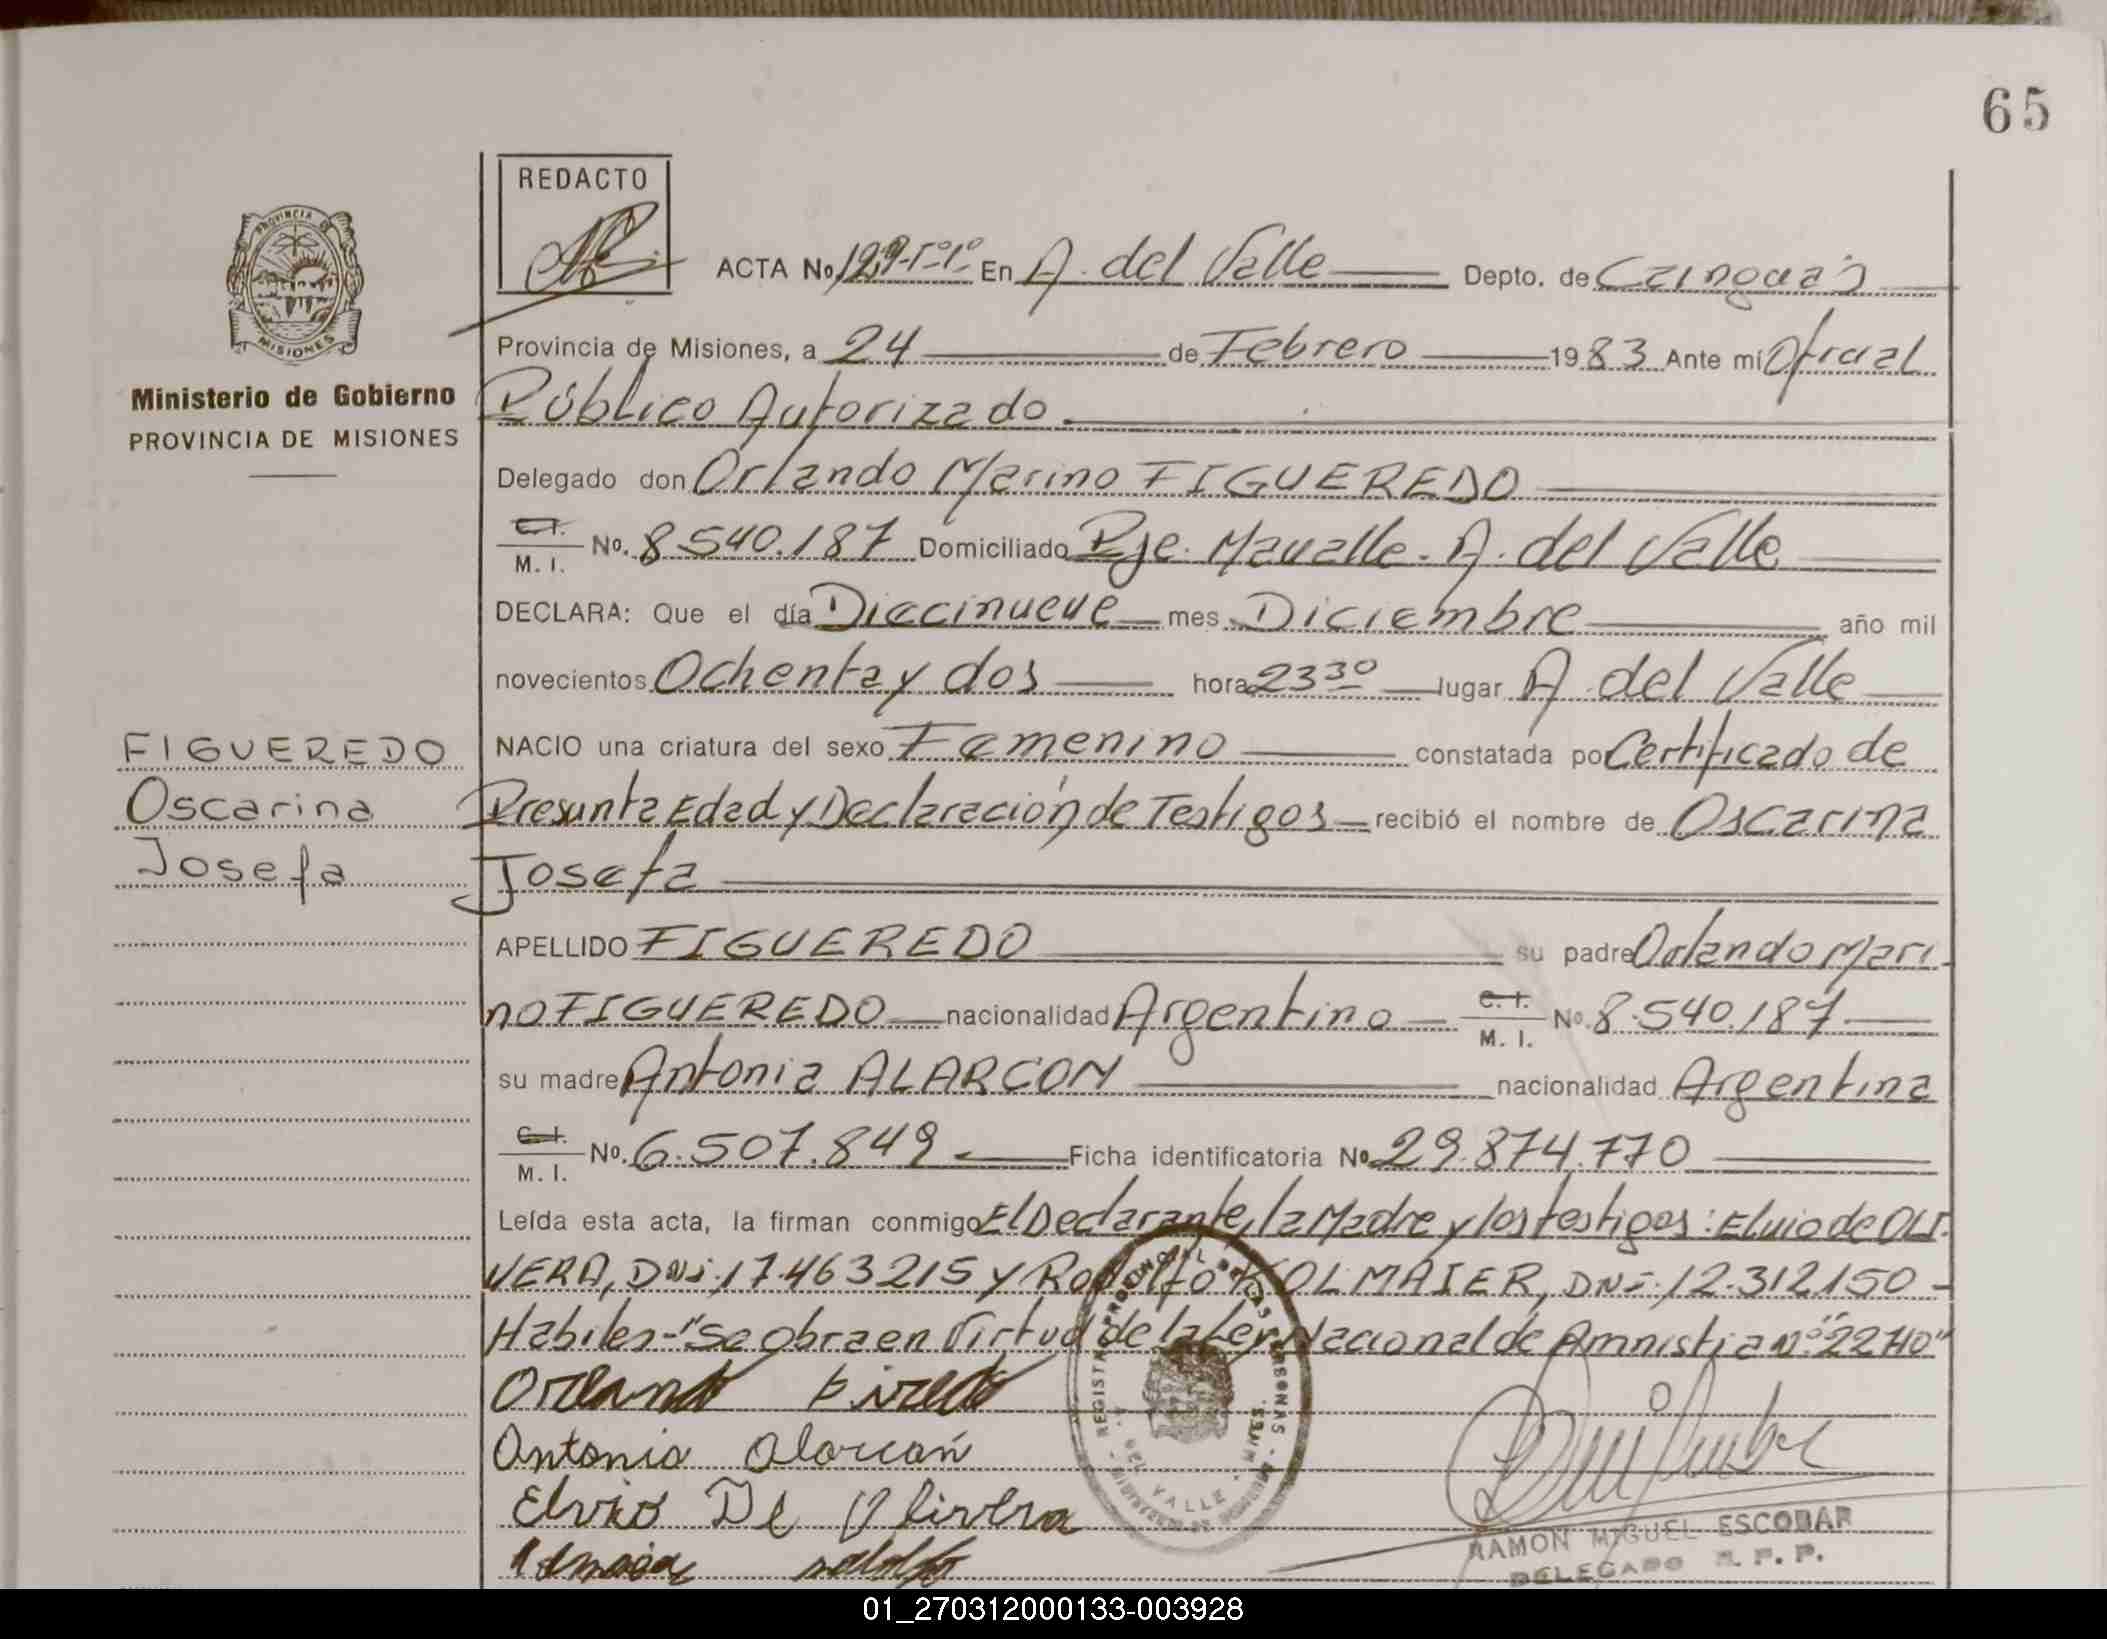 65
REDACTO
ACTA No 129-Tº1º- En A. del Valle Depto. de Cainguás
Provincia de Misiones, a 24 de Febrero 1983 Ante mi Oficial
Público Autorizado
Delegado don Orlando Marino FIGUEREDO
C.I.
M. I. No. 8.540.187 Domiciliado Pje. Mavalle - A. del Valle
DECLARA: Que el día Diecinueve mes Diciembre año mil
novecientos Ochenta y dos hora 23 30 lugar A. del Valle
NACIO una criatura del sexo Femenino constatada por Certificado de
Presunta Edad y Declaración de Testigos recibió el nombre de Oscarina
Josefa
APELLIDO FIGUEREDO su padre Orlando Mari
no FIGUEREDO nacionalidad Argentino C.I.
M. I. No. 8.540.187
su madre Antonia ALARCON nacionalidad Argentina
C.I.
M. I. No. 6.507.849 Ficha identificatoria No 29.874.770
Leída esta acta, la firman conmigo El Declarante, la Madre y los testigos: Elvio de OLI-
VERA, DNI. 17.463215 y Rodolfo KOLMAIER, DNI. 12.312150 -
Habiles - "Se obra en Virtud de la Ley Nacional de Amnistia Nº 22410"
Antonia Alarcón
Elvio De Olivera
RAMON MIGUEL ESCOBAR
DELEGADO R. P. P.
PROVINCIA DE
MISIONES
Ministerio de Gobierno
PROVINCIA DE MISIONES
FIGUEREDO
Oscarina
Josefa
01_270312000133-003928